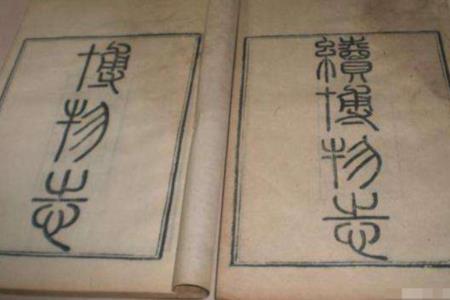 博物志
續博物志